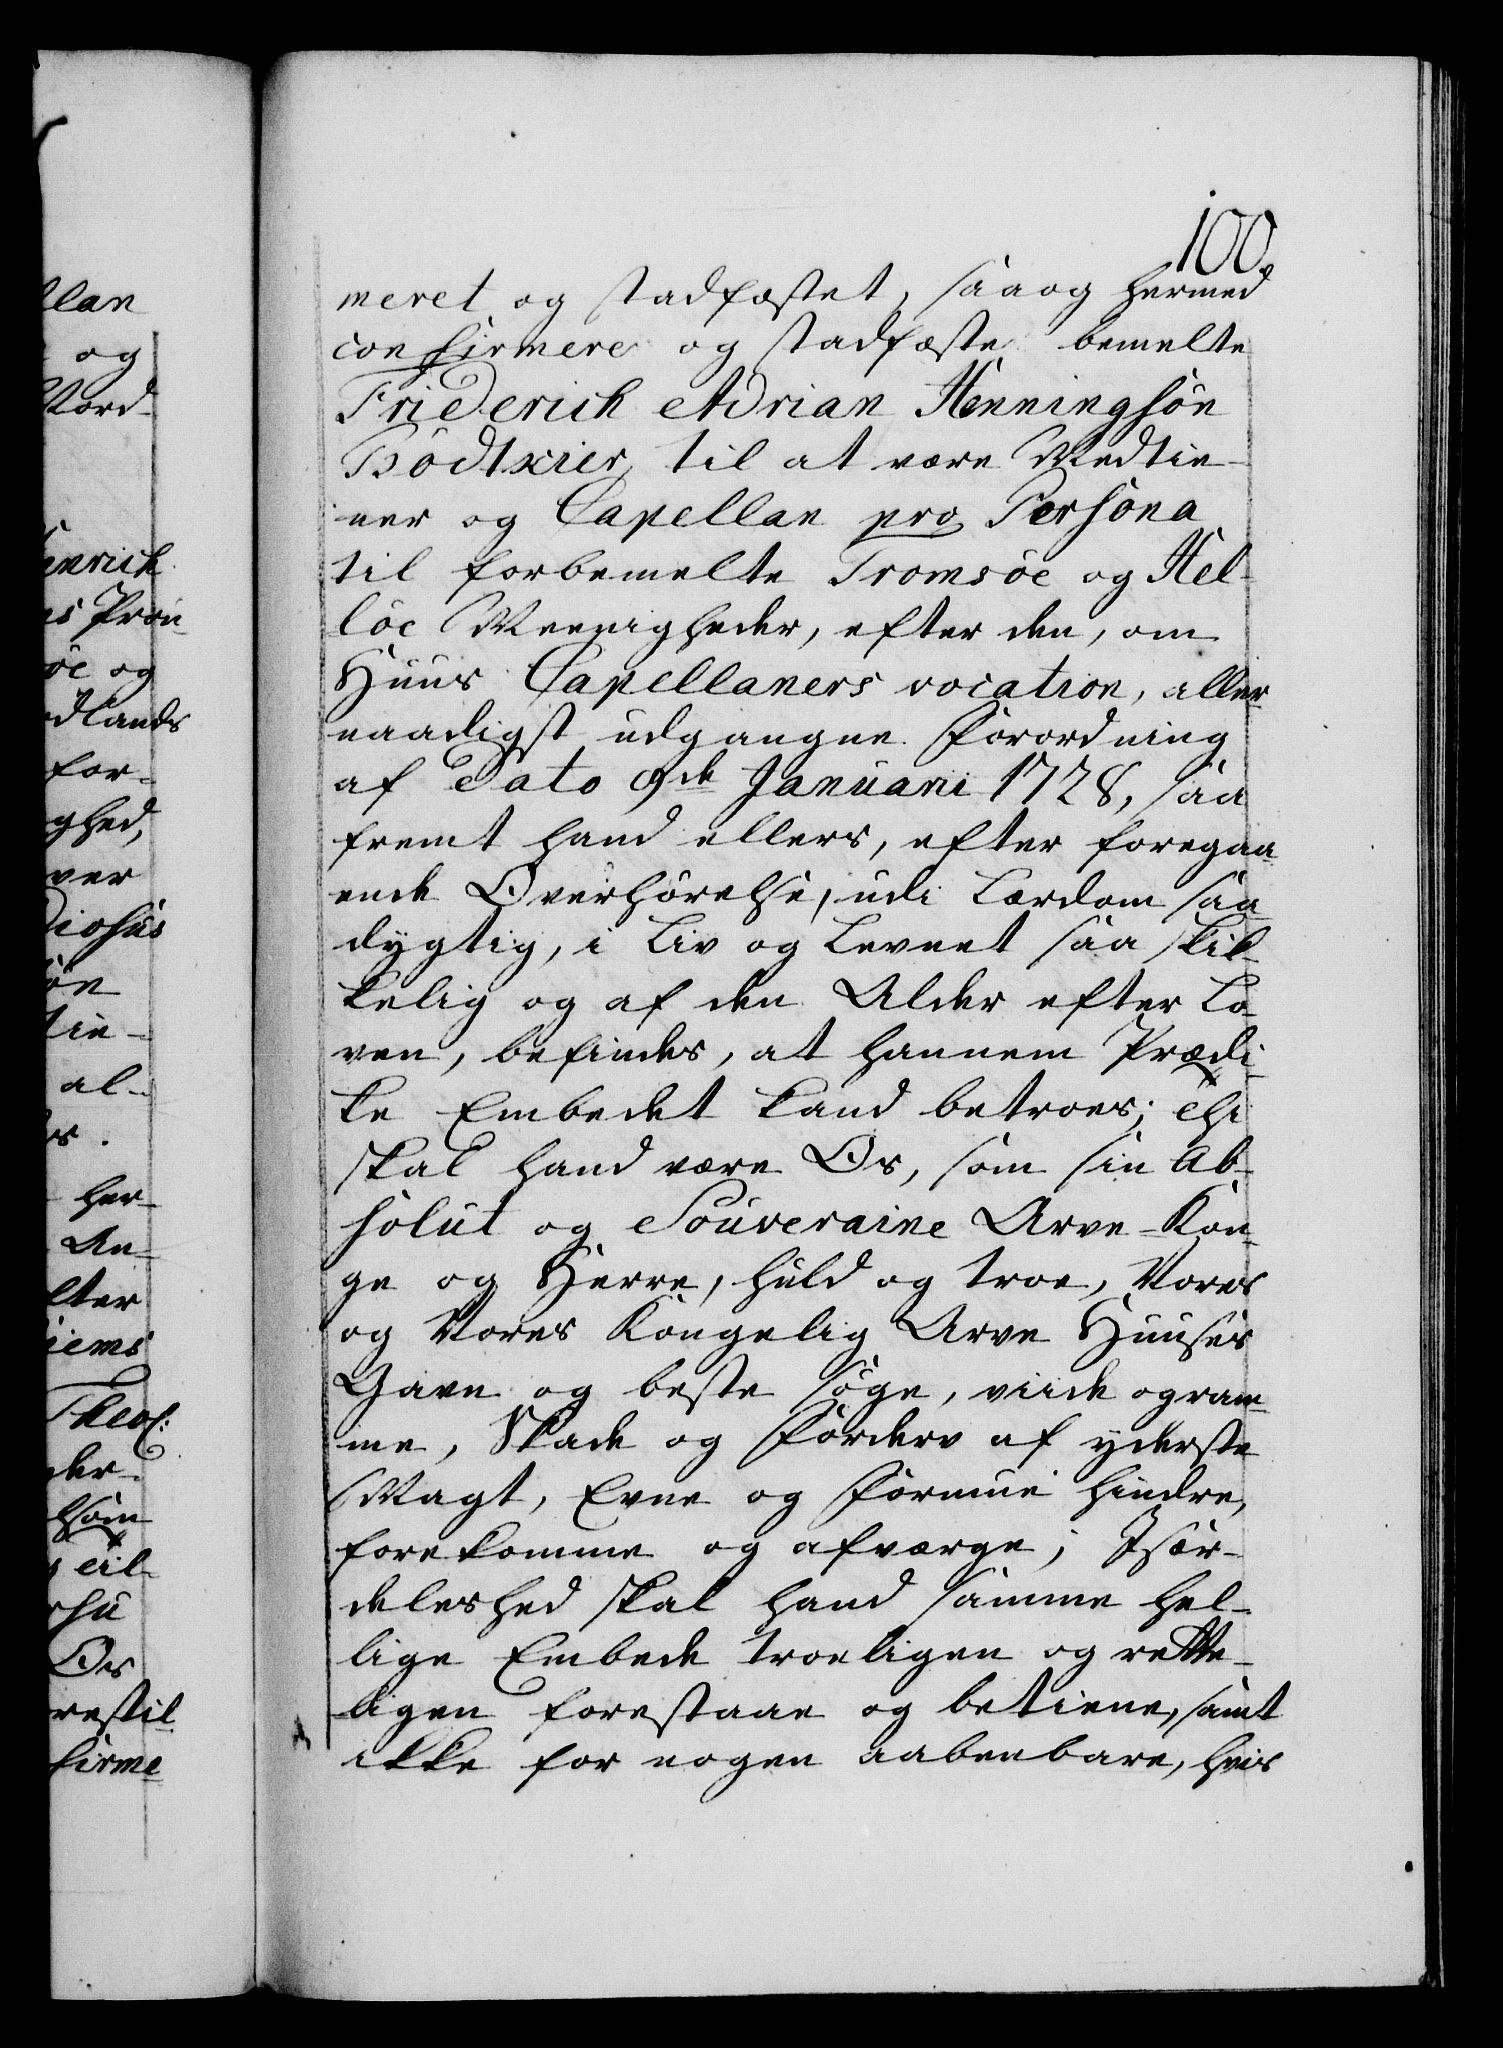 100.
meret og stadfæstet, saa og hermed
confirmere og stadfæste bemelte
Friderich Adrian Henningsön
Bödtxier, til at være Medtie-
ner og Capellan pro Persona
til forbemelte Tromsöe og Hel-
löe Meenigheder, efter den, om
Huus Capellaners vocation, aller-
naadigst udgangne Forordning
af Dato 9de Januarii 1728, saa-
fremt hand ellers, efter foregaa-
ende Overhörelse, udi Lærdom saa
dygtig, i Liv og Levnet saa skik-
kelig og af den Alder efter Lo-
ven, befindes, at hannem Prædi-
ke Embedet kand betroes; Thi
skal hand være Os, som sin Ab-
solut og Souveraine Arve-Kon-
ge og Herre, huld og troe, Vores
og Vores Kongelig Arve Huuses
Gavn og beste söge, viide og ram-
me, Skade og Forderv af yderste
Magt, Evne og Formue hindre,
forekomme og afværge; Især-
deleshed skal hand samme hel-
lige Embede troeligen og rette-
ligen forestaae og betiene, samt
ikke for nogen aabenbare, hvis
llan
og
Nord-
Hinrich
ns Pron-
öe og
rdlands
for-
ghed,
ver
Diosus
ön
tie-
al-
her-
An-
lter
iems
Theol:
der-
som
Os
restil-
firme-